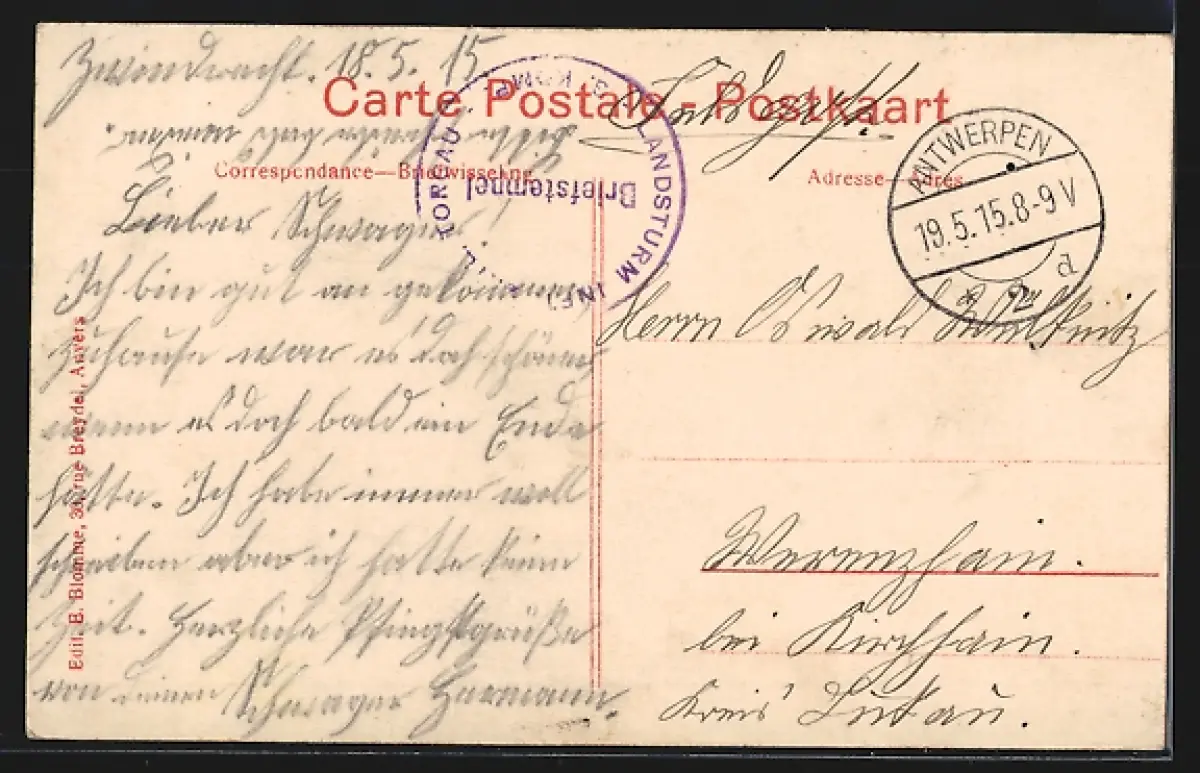 Zwindracht. 18.5.15
Carte Postale - Postkaart
Feldpost
Correspondance—Briefwisseling
Adresse—Adres
LANDSTURM INF. TORGAU 3. KOMP.
Briefstempel
ANTWERPEN
19.5.15.8-9V
d
* 2 *
Lieber Schwager!
Ich bin gut an gekommen
zuhause war es doch schöner
wenn es doch bald ein Ende
hätte. Ich habe immer woll
schreiben aber ich hatte keine
Zeit. Herzliche Pfingstgrüße
von deinen Schwager Hermann.
Herrn Oswald
Werenzhain.
bei Kirchhain.
Kreis Lukau.
Edit. B. Blomme, rue Breydel, Anvers